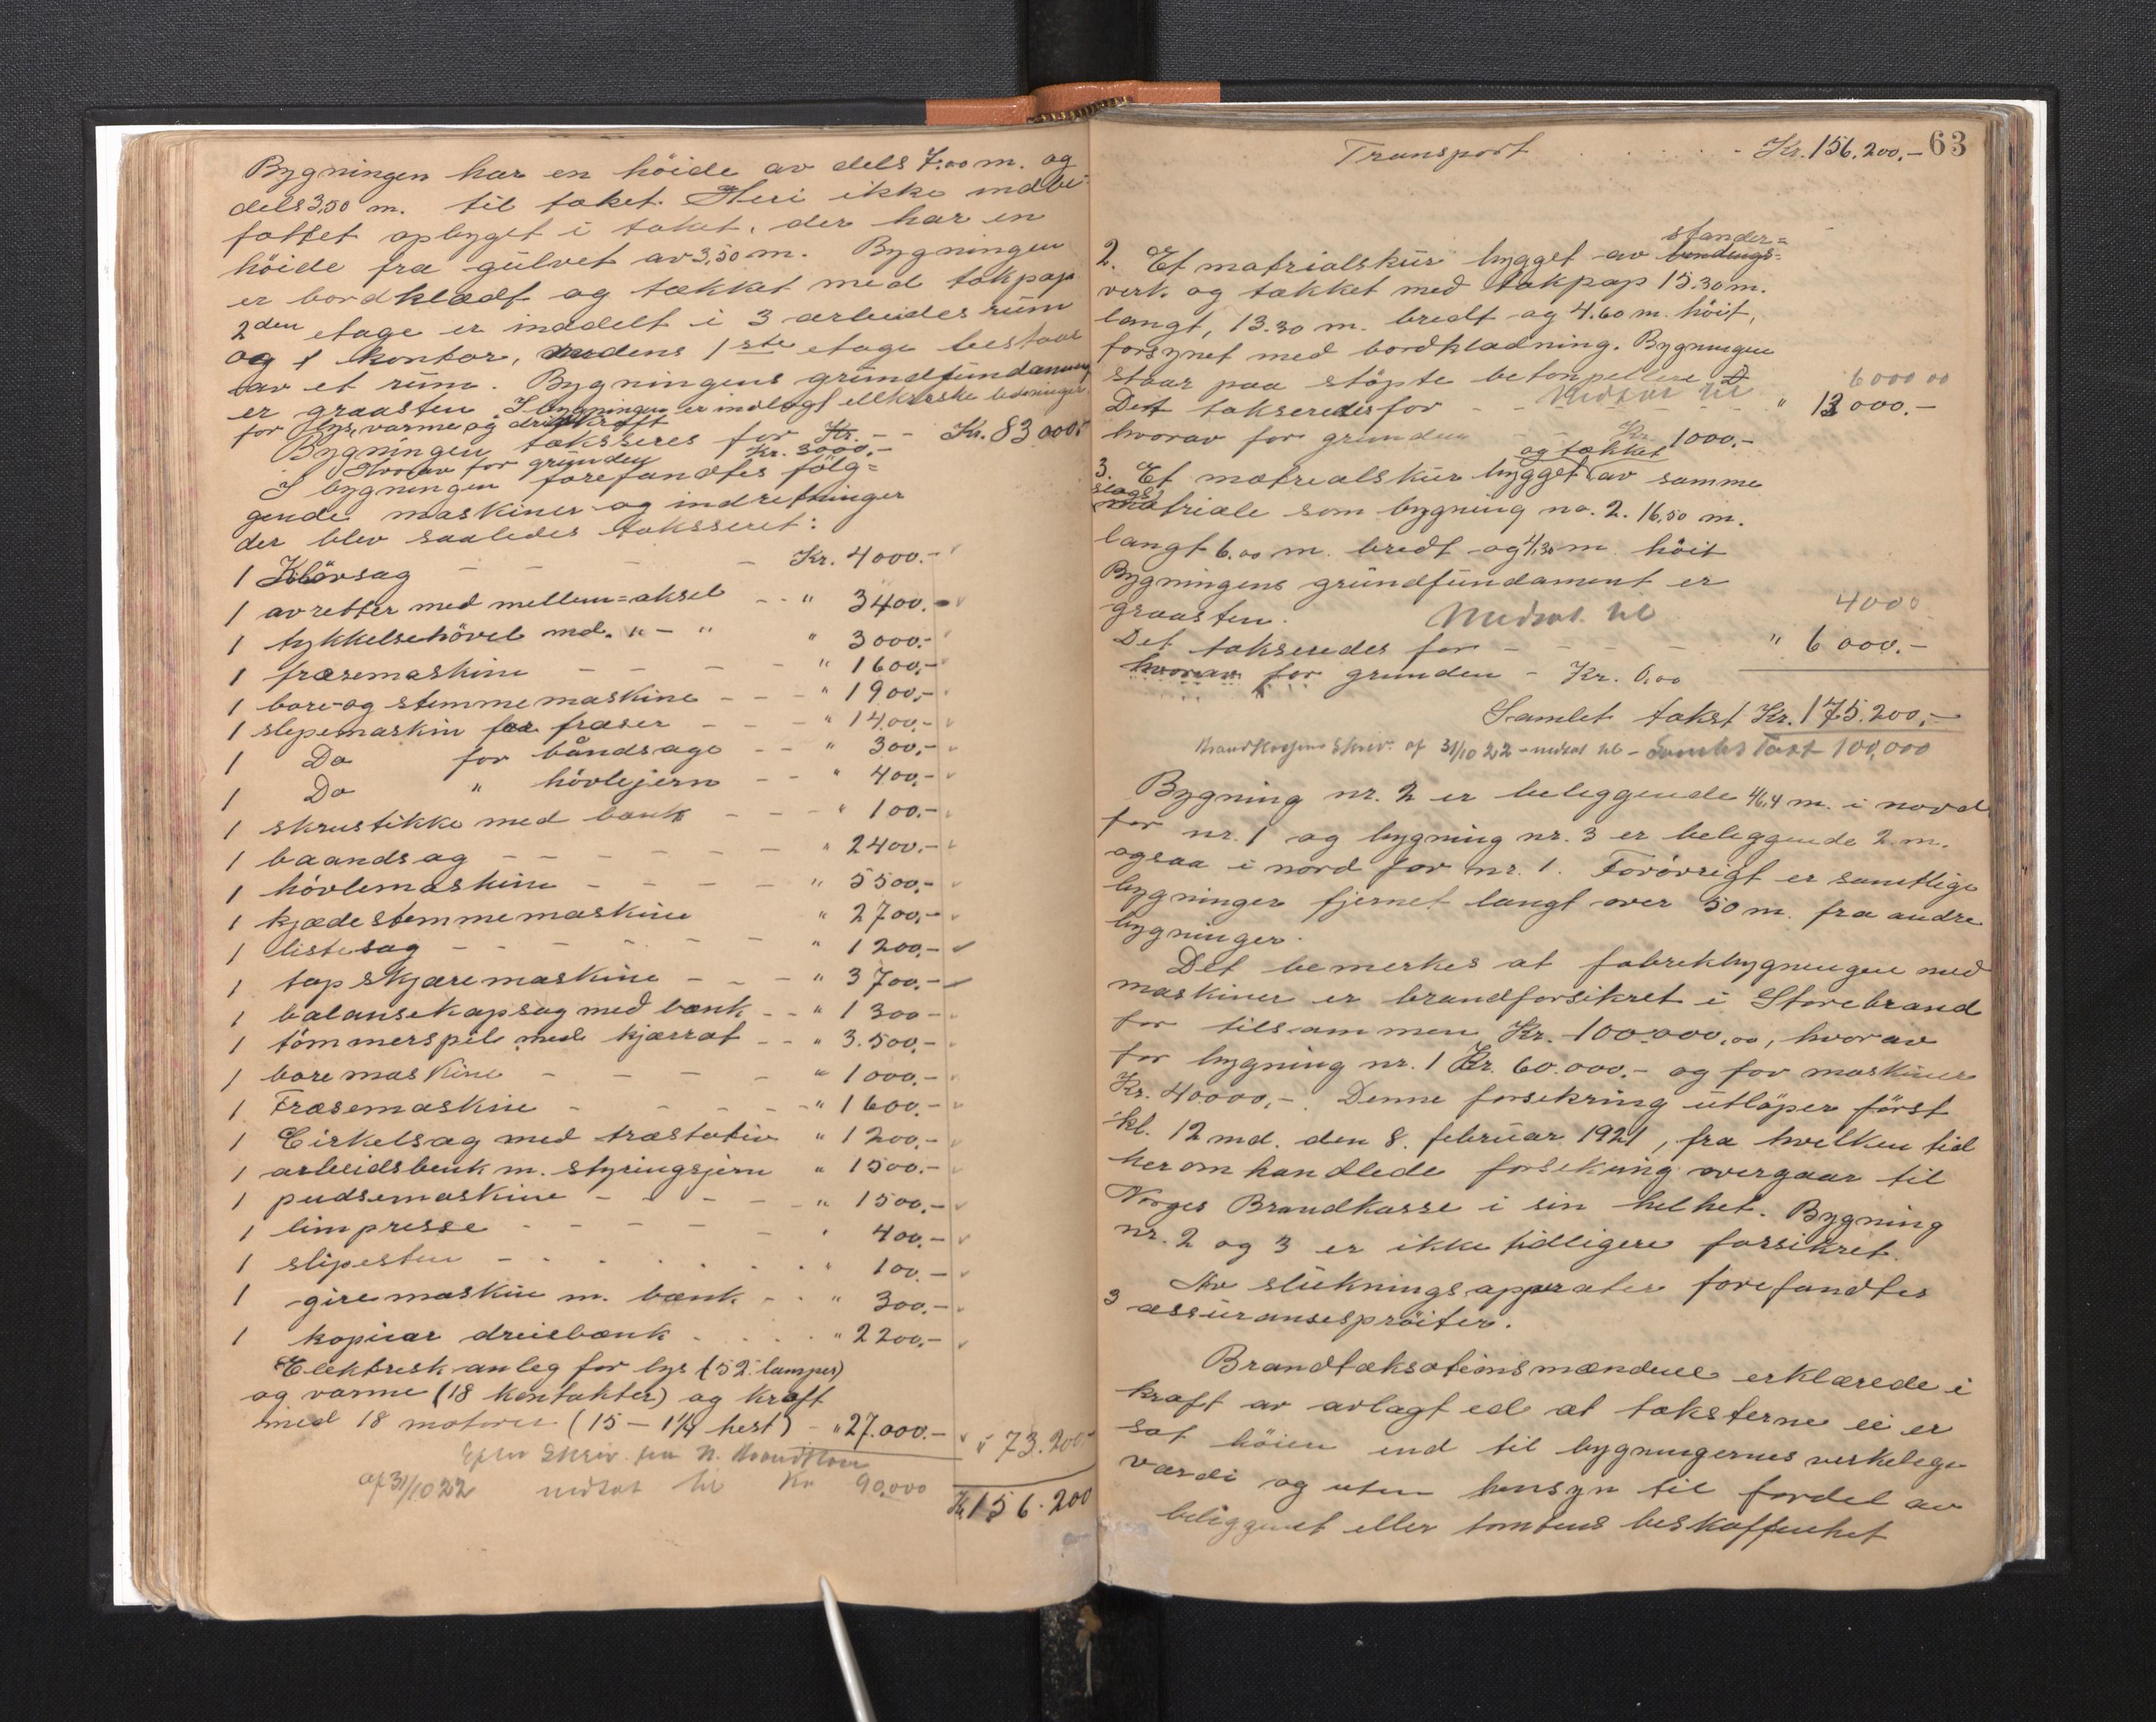 Bygningen har en höide av dels 7.00 m. og
dels 3,50 m. til taket. Heri ikke indbe-
fattet opbyget i taket, der har en
höide fra gulvet av 3,50 m. Bygningen
er bordklædt og tækket med takpap
2den etage er inddelt i 3 arbeidesrum
og 1 kontor, medens 1ste etage bestaar
av et rum. Bygningens grundfundament
er graasten. I bygningen er indlagt elektriske ledninger
for lys, varme og drivkraft
Bygningen taksseres for Kr. - - Kr. 83 000.-
Hvorav for grunden Kr. 3000.-
I bygningen forefandtes fölg=
gende maskiner og indretninger
der blev saaledes taksseret:
1 Klövsag - - - - Kr. 4000.-
1 avretter med mellem=aksel - - " 3400.-
1 tykkelsehövel md. " - " " 3000.-
1 fræsemaskine - - - - " 1600,-
1 bore- og stemmemaskine - - - " 1900,-
1 slipemaskin for fræser - - - " 1400.-
1 Do for båndsage - - " 300,-
1 Do " hövlejern - - " 400,-
1 skrustikke med bænk - - - " 100.-
1 baandsag - - - - - - " 2400.-
1 hövlemaskine - - - - " 5500,-
1 kjædestemmemaskine " 2700,-
1 listesag - - - - - - " 1200,-
1 tapskjæremaskine - - - " 3700.-
1 balansekapsag med bænk - - " 1300-
1 tömmerspil med kjærrat - - " 3.500,-
1 boremaskine - - - - " 1000.-
1 Fræsemaskine - - - - " 1600.-
1 Cirkelsag med træstativ " 1200.-
1 arbeidsbenk m. styringsjern " 1500.-
1 pudsemaskine - - - - " 1500,-
1 limpresse - - - - - " 400,-
1 slipesten - - . . . . . " 100.-
1 giremaskin m. bænk - - " 300.-
1 kopiear dreiebænk . . . . " 2200,-
Elektrisk anleg for lys (52 lamper)
og varme (18 kontakter) og kraft
med 18 motorer (15 - 1 1/4 hest) - " 27.000.- " 73.200
Efter Skriv. fra N. Brandkasse
af 31/10 22 nedsat til Kr 90,000
Kr 156.200
63
Transport . . . . . - Kr. 156.200.-
stander=
2. Et matrialskur bygget av bindings=
verk og tækket med takpap 15.30 m.
langt, 13.30 m. bredt og 4.60 m. höit,
forsynet med bordklædning. Bygningen
staar paa stöpte betonpillere D
Nedsat til 6000 00
Det takseredes for - - - " 13 000.-
hvorav for grunden - - Kr. 1000.-
og tækket
3. Et matrealskur bygget av samme
slags
matriale som bygning no. 2. 16,50 m.
langt 6.00 m. bredt og 4,30 m. höit
Bygningens grundfundament er
graasten. Nedsat til 4000
Det takseredes for - - - - - " 6 000.-
hvorav for grunden - Kr. 0,00
Samlet takst Kr. 175.200,-
Brandkassens Skriv. af 31/10 22 - nedsat til - Samlet Takst 100,000
Bygning nr. 2 er beliggende 46,4 m. i nord
for nr. 1 og bygning nr. 3 er beliggende 2 m.
ogsaa i nord for nr. 1. Forövrigt er samtlige
bygninger fjernet langt over 50 m. fra andre
bygninger.
Det bemerkes at fabrikbygningen med
maskiner er brandforsikret i Storebrand
for tilsammen Kr. 100.000,00, hvorav
for bygning nr. 1 Kr. 60.000.- og for maskiner
Kr. 40000,-. Denne forsikring utlöper först
kl. 12 md. den 8. februar 1921, fra hvilken tid
heromhandlede forsikring overgaar til
Norges Brandkasse i sin helhet. Bygning
nr. 2 og 3 er ikke tidligere forsikret.
Av slukningsapparater forefandtes
3 assuransespröiter.
Brandtaksationsmændene erklærede i
kraft av avlagt ed at taksterne ei er
sat höiere end til bygningernes verkelige
værdi og uten hensyn til fordel av
beliggenhet eller tomtens beskaffenhet